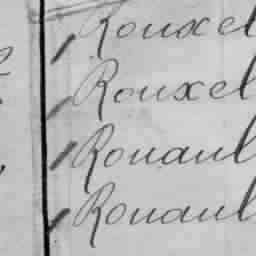 Rouxel
Rouxel
Rouaul
Rouaul